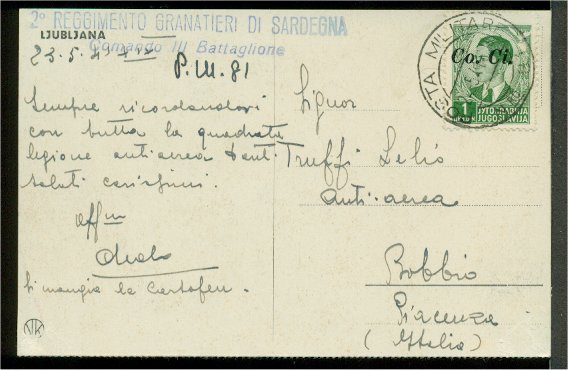 2° REGGIMENTO GRANATIERI DI SARDEGNA
Comando III Battaglione
LJUBLJANA
23.5.41
P.M. 81
Sempre ricordandovi
con tutta la quadrata
legione antiaerea tanti
saluti carissimi.
aff.mo
Si mangia le Cartofen.
Signor
Truffi Lelio
Anti-aerea
Bobbio
Piacenza
(Italia)
POSTA MILITARE
Co. Ci.
1
JUGOSLAVIJA
NK